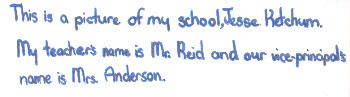 This is a picture of my school, Jesse Ketchum.
My teacher's name is Mr. Reid and our vice-principal's
name is Mrs. Anderson.